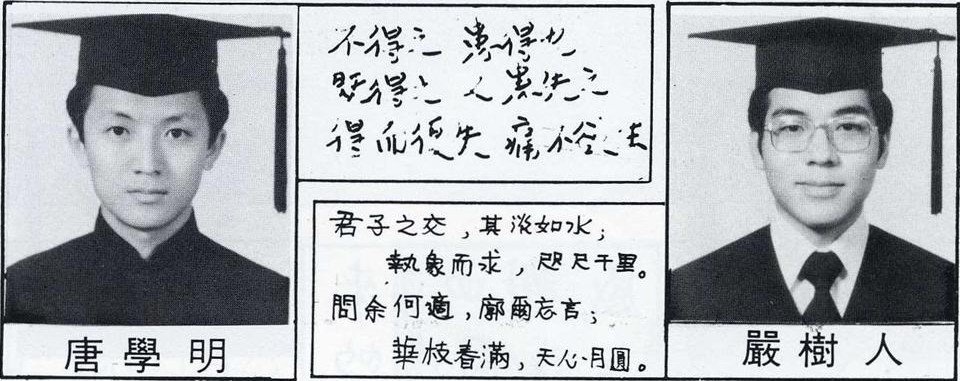 唐學明
不得之 得也
既得之 患失之
得而復失 痛不
君子之交，其淡如水；
執象而求，咫尺千里。
問余何適，廓爾忘言；
華枝春滿，天心月圓。
嚴樹人